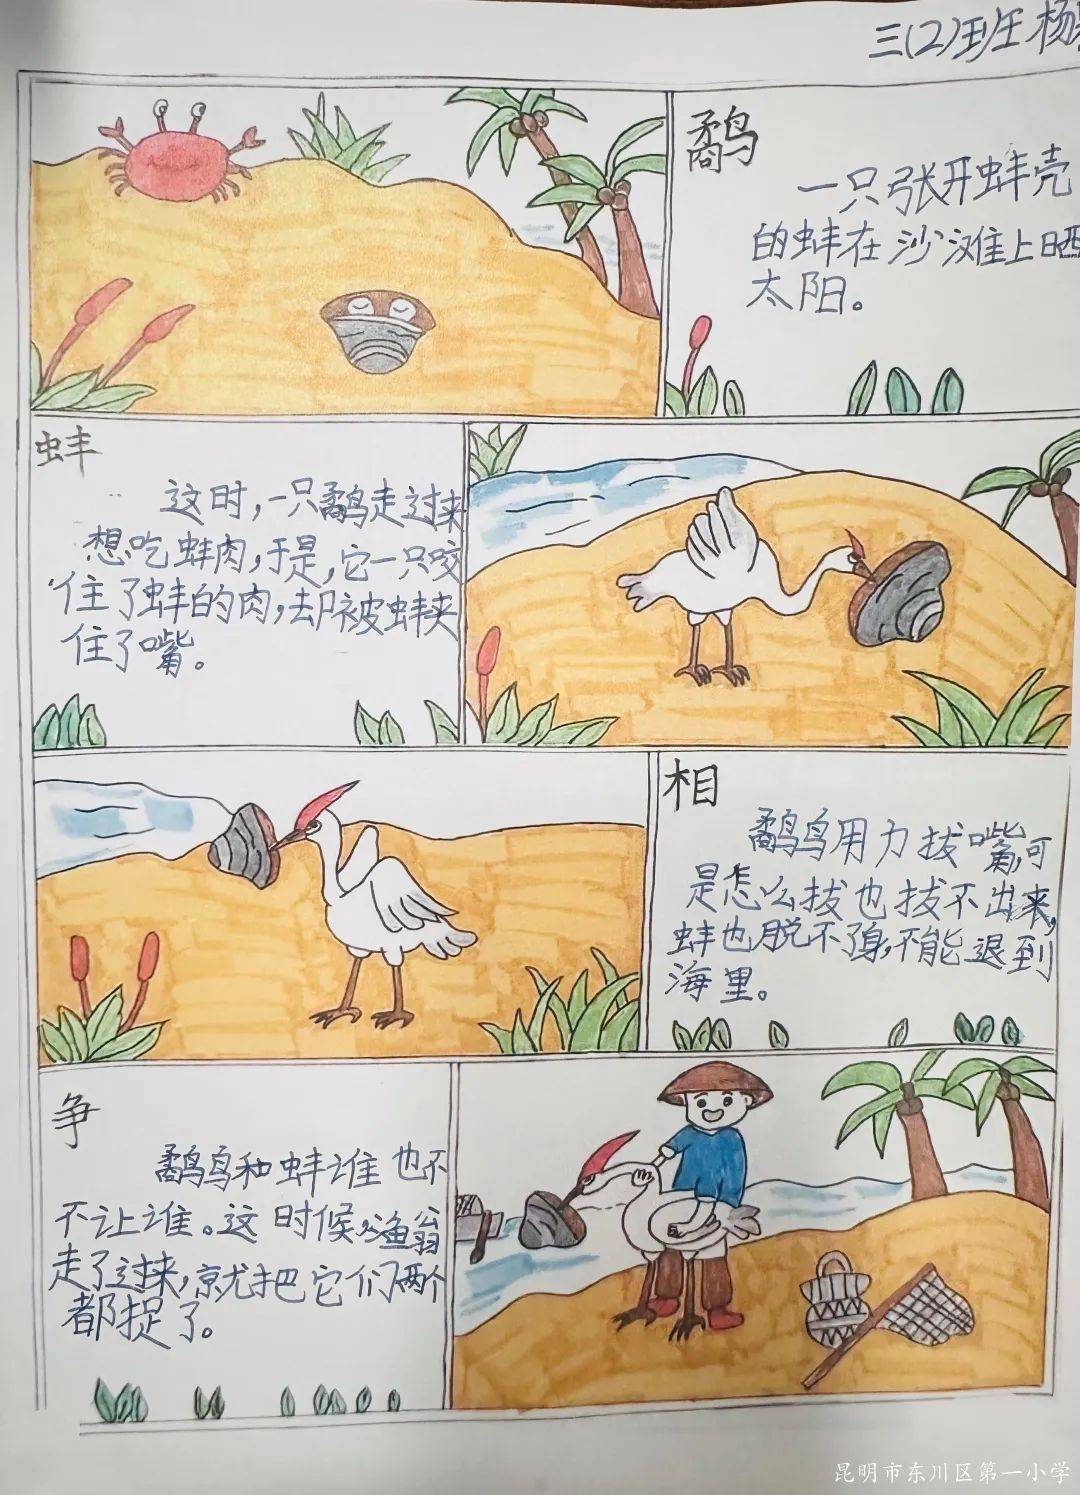 三(2)班 杨
鹬
一只张开蚌壳
的蚌在沙滩上晒
太阳。
蚌
这时,一只鹬走过来
想吃蚌肉,于是,它一只咬
住了蚌的肉,却被蚌夹
住了嘴。
相
鹬鸟用力拔嘴,可
是怎么拔也拔不出来,
蚌也脱不了身,不能退到
海里。
争
鹬鸟和蚌谁也不
不让谁。这时候,渔翁
走了过来,就把它们两个
都捉了。
昆明市东川区第一小学